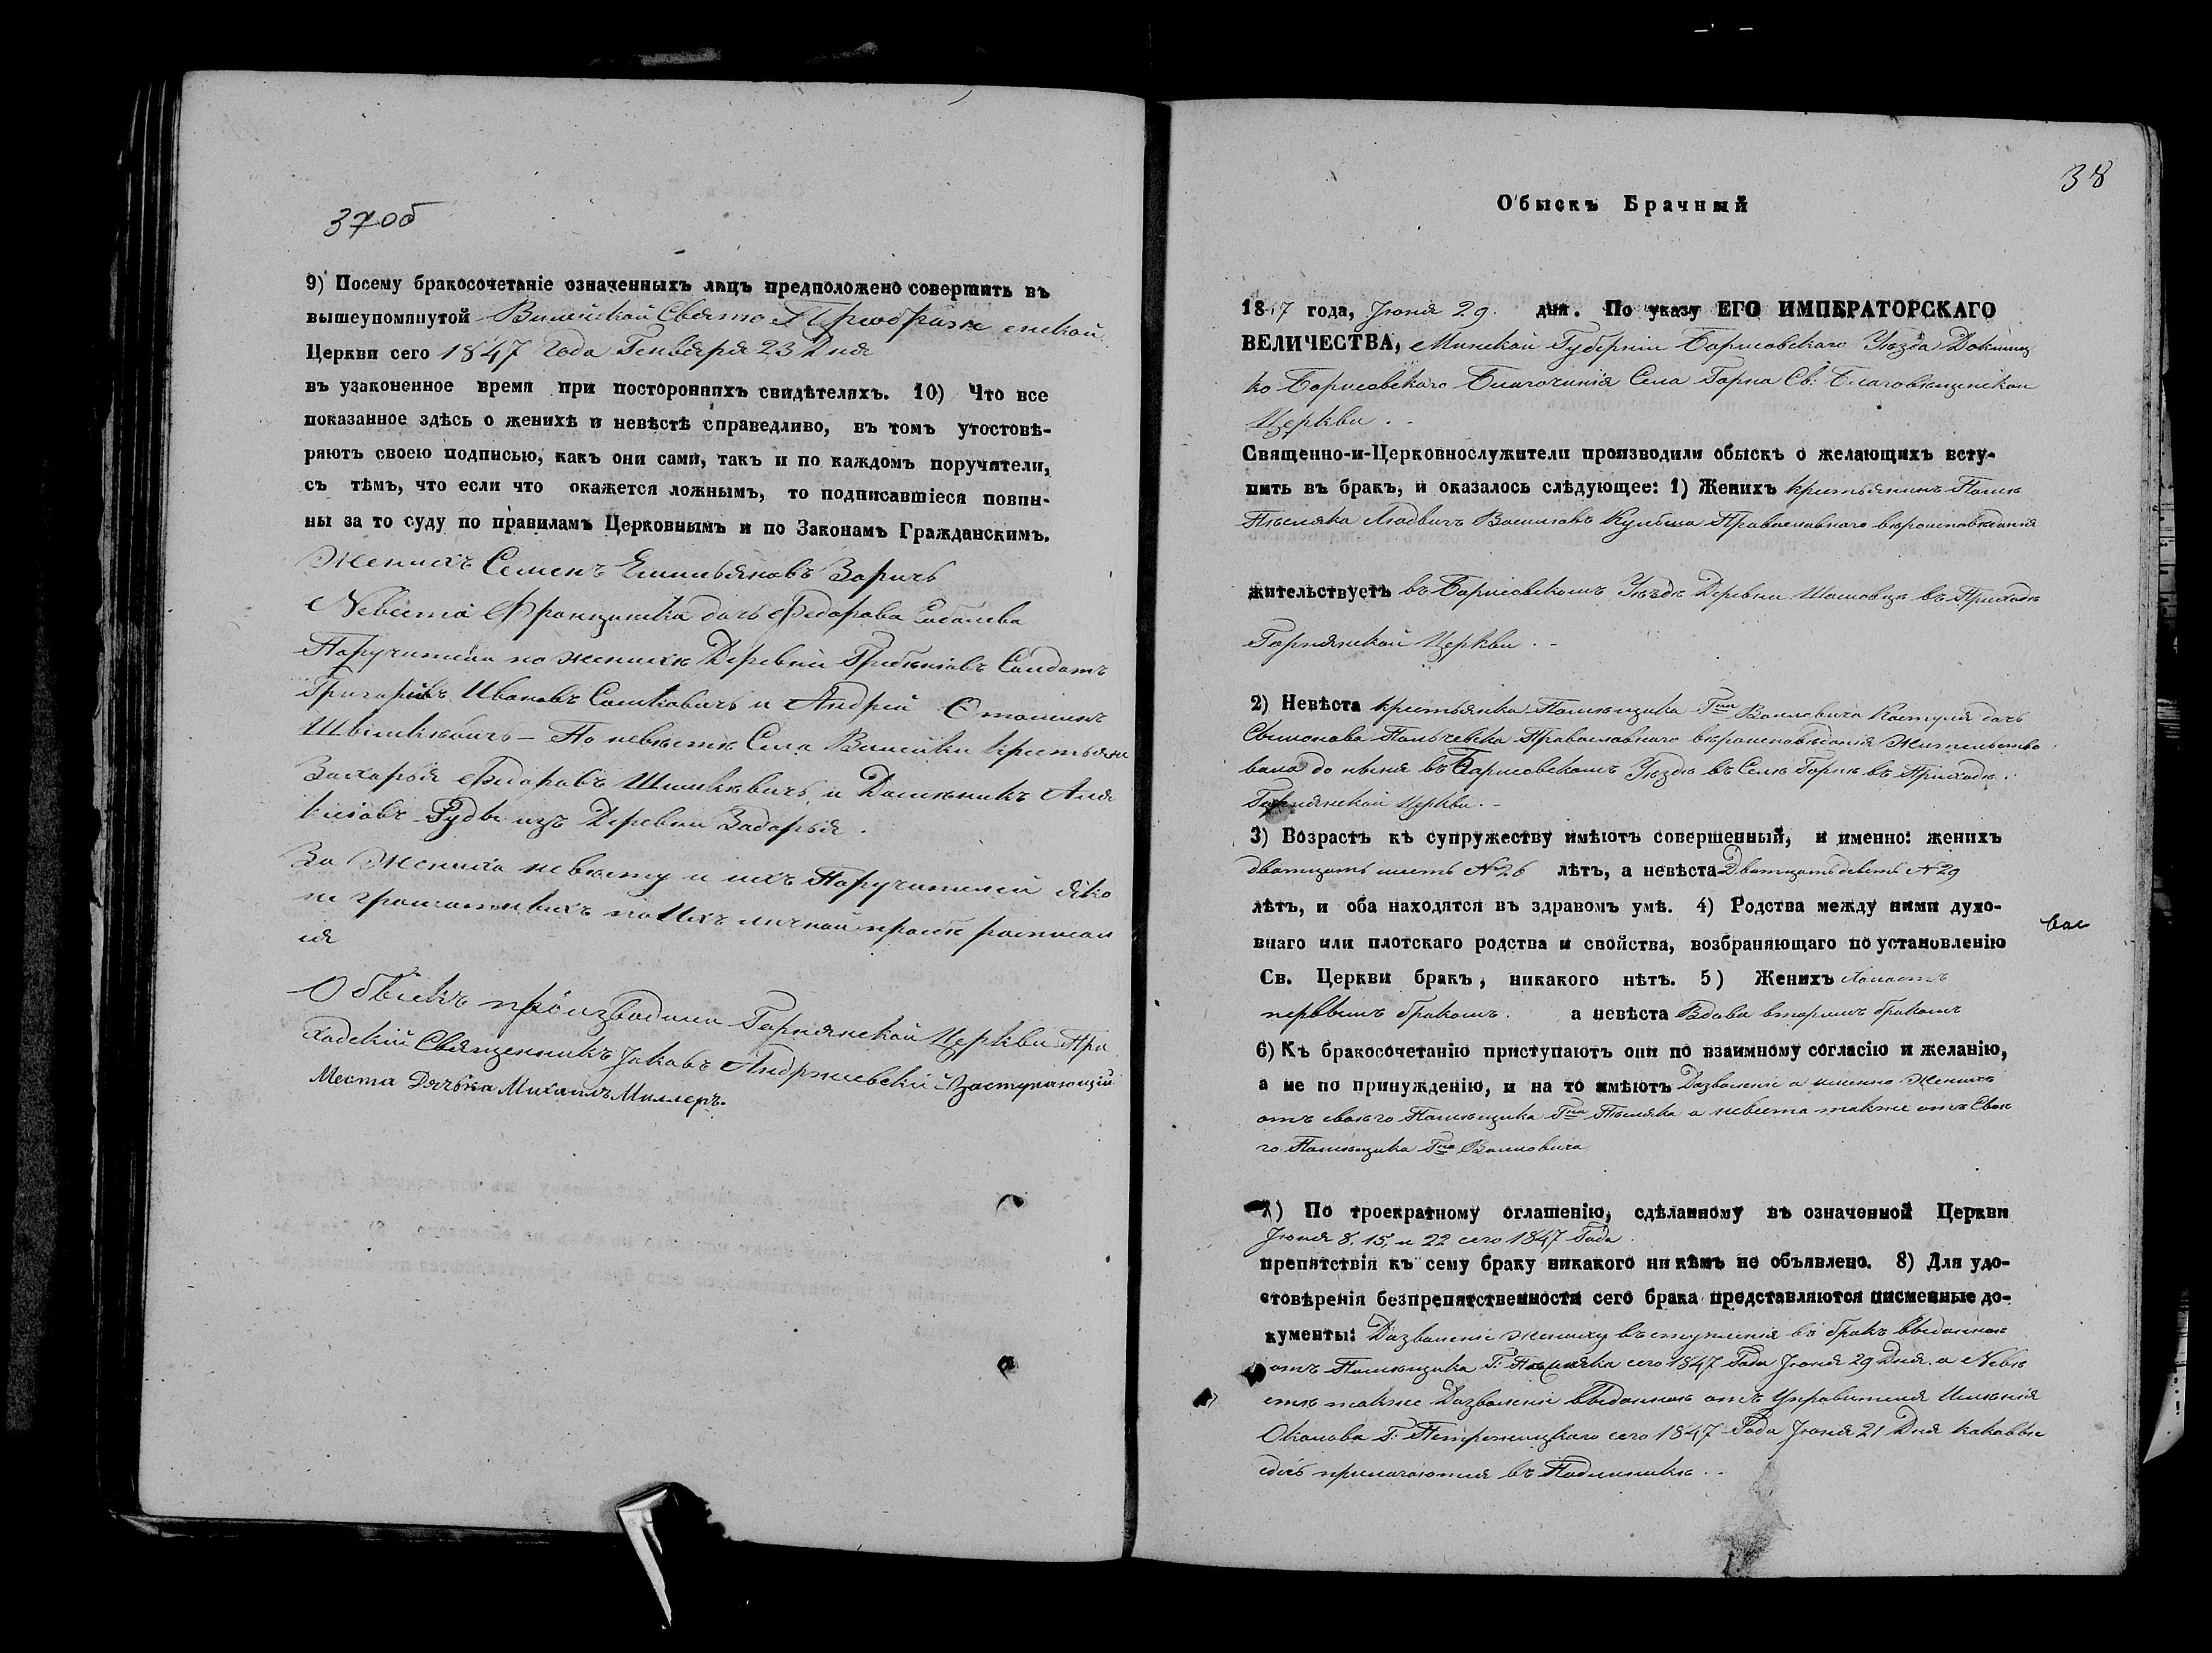 37об
9) Посему бракосочетаніе означенныхъ лицъ предположено совершить въ
вышеупомянутой Вилейской Свято Преображенской
Церкви сего 1847 Года Генваря 23 Дня
въ узаконенное время при постороннихъ свидѣтеляхъ. 10) Что все
показанное здѣсь о женихѣ и невѣстѣ справедливо, въ томъ утостовѣ-
ряютъ своею подписью, какъ они сами, такъ и по каждомъ поручители,
съ тѣмъ, что если что окажется ложнымъ, то подписавшіеся повин-
ны за то суду по правиламъ Церковнымъ и по Законамъ Гражданскимъ.
Женихъ Семенъ Емильяновъ Заричъ
Невеста Францишка дочь Федорова
Поручители по женихѣ Деревни Солдатъ
Григорій Ивановъ и Андрей
По невѣстѣ Села Вилейки Крестьяне
Захарья Федоровъ и
изъ Деревни Заборья.
За Жениха невѣсту и ихъ Поручителей яко
не грамотныхъ по ихъ личной просьбѣ росписал
ся
Обыскъ производили Горнянской Церкви При
ходскій Священникъ Іаковъ Андржиевскій Заступающій
Места Дячька Михаилъ Миллеръ.
38
Обыскъ Брачный
1847 года, Іюня 29. дня. По указу ЕГО ИМПЕРАТОРСКАГО
ВЕЛИЧЕСТВА, Минской Губерніи Борисовского Уѣзда Докшиц
ко Борисовского Благочинія Села Горна Св: Благовѣщенской
Церкви.
Священно-и-Церковнослужители производили обыскъ о желающихъ всту-
пить въ бракъ, и оказалось слѣдующее: 1) Женихъ крестьянинъ Помѣ
Людвигъ Василовъ Кульша Православного вѣроисповѣданія
жительствуетъ въ Борисовскомъ Уѣздѣ Деревни въ Приходѣ
Горнянской Церкви.
2) Невѣста крестьянка Помѣщика Гна Воиловича Настуля дочь
Сымонова Православного вѣроисповѣданія Жительство
вала до ныня въ Борисовскомъ Уѣздѣ въ Селѣ Горнѣ въ Приходѣ
Горнянской Церкви.
3) Возрастъ къ супружеству имѣютъ совершенный, и именно: женихъ
дватцать шесть №26 лѣтъ, а невѣста Дватцать деветь №29
лѣтъ, и оба находятся въ здравомъ умѣ. 4) Родства между ними духо-
внаго или плотскаго родства и свойства, возбраняющаго по установленію
Св. Церкви бракъ, никакого нѣтъ. 5) Женихъ Холостъ
первымъ бракомъ. а невѣста Вдова вторымъ бракомъ
6) Къ бракосочетанію приступаютъ они по взаимному согласію и желанію,
а не по принужденію, и на то имѣютъ Дозволеніе а именно Женихъ
отъ своего Помѣщика Гна а невеста также отъ Свое
го Помѣщика Гна Воиловича
7) По троекратному оглашенію, сдѣланному въ означенной Церкви
Іюня 8. 15, и 22 сего 1847 Года
препятствія къ сему браку никакого ни кѣмъ не объявлено. 8) Для удо-
стовѣренія безпрепятственности сего брака представляются писменные до-
кументы: Дозволеніе жениху вступленія въ бракъ выданное
отъ Помѣщика Г: сего 1847 Года Іюня 29 Дня. а Невѣ
стѣ также Дозволеніе выданное отъ Управителя Имѣнія
Околова Г: сего 1847 Года Іюня 21 Дня каковые
здѣсь прилагаются въ Подлинникѣ.